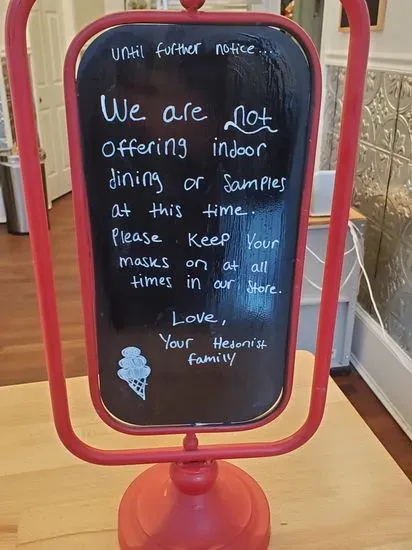 until further notice....
We are not
offering indoor
dining or Samples
at this time.
Please Keep Your
masks on at all
times in our Store.
Love,
Your Hedonist
family